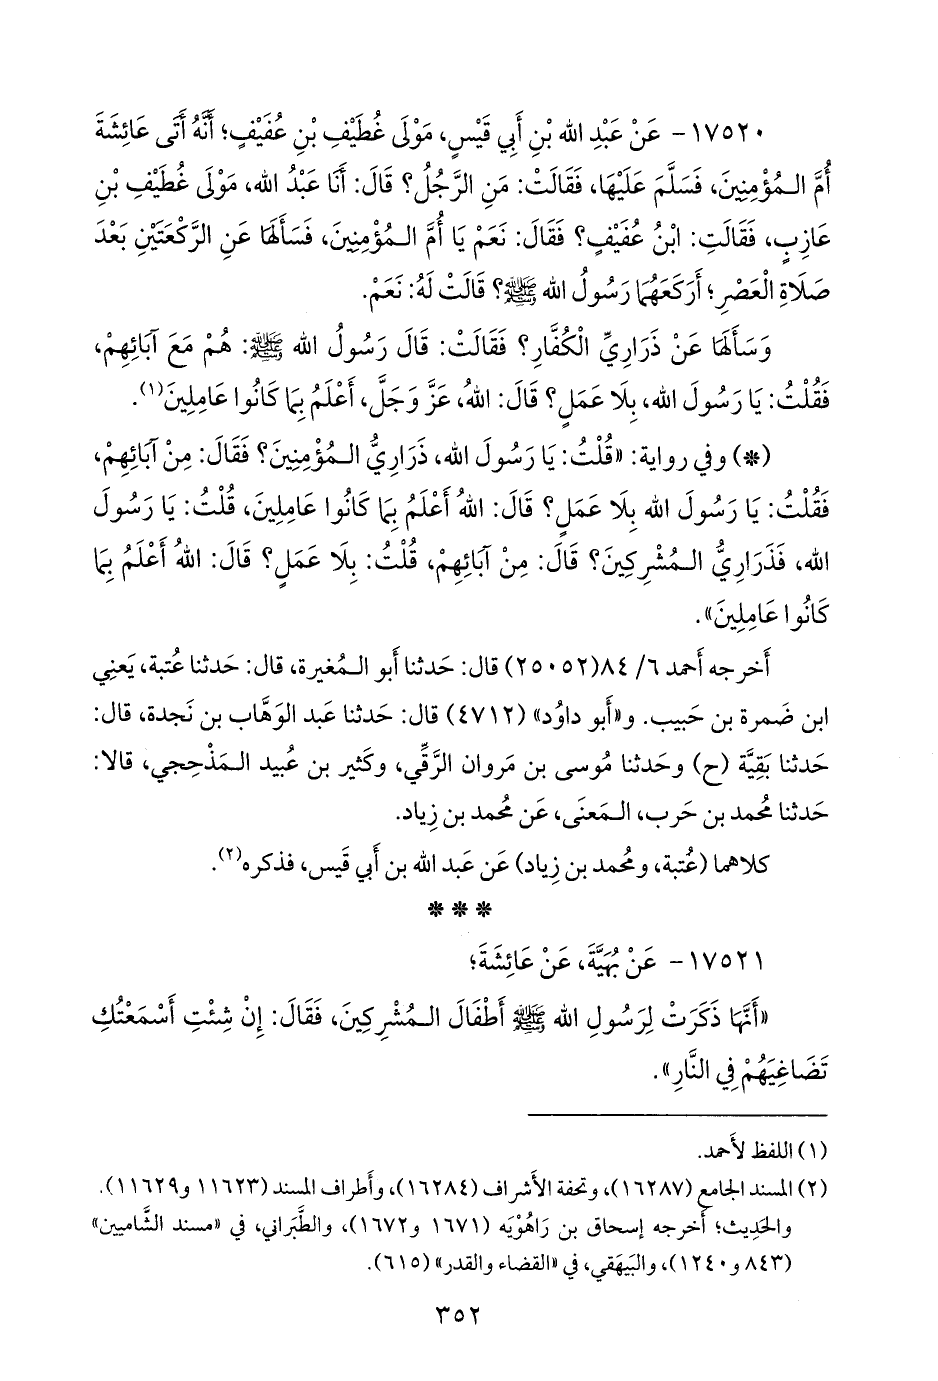 ١٧٥٢٠- عَنْ عَبْدِ الله بْنِ أَبِي قَيْسٍ، مَوْلَى غُطَيْفِ بْنِ عُفَيْفٍ؛ أَنَّهُ أَتَى عَائِشَةَ
أُمَّ الـمُؤْمِنِينَ، فَسَلَّمَ عَلَيْهَا، فَقَالَتْ: مَنِ الرَّجُلُ؟ قَالَ: أَنَا عَبْدُ الله، مَوْلَى غُطَيْفِ بْنِ
عَازِبٍ، فَقَالَتِ: ابْنُ عُفَيْفٍ؟ فَقَالَ: نَعَمْ يَا أُمَّ الـمُؤْمِنِينَ، فَسَأَلَهَا عَنِ الرَّكْعَتَيْنِ بَعْدَ
صَلَاةِ الْعَصْرِ؛ أَرَكَعَهُمَا رَسُولُ الله ﷺ؟ قَالَتْ لَهُ: نَعَمْ.
وَسَأَلَهَا عَنْ ذَرَارِيِّ الْكُفَّارِ؟ فَقَالَتْ: قَالَ رَسُولُ الله ﷺ: هُمْ مَعَ آبَائِهِمْ،
فَقُلْتُ: يَا رَسُولَ الله، بِلَا عَمَلٍ؟ قَالَ: اللهُ، عَزَّ وَجَلَّ، أَعْلَمُ بِمَا كَانُوا عَامِلِينَ(١).
(*) وفي رواية: «قُلْتُ: يَا رَسُولَ الله، ذَرَارِيُّ الـمُؤْمِنِينَ؟ فَقَالَ: مِنْ آبَائِهِمْ،
فَقُلْتُ: يَا رَسُولَ الله بِلَا عَمَلٍ؟ قَالَ: اللهُ أَعْلَمُ بِمَا كَانُوا عَامِلِينَ، قُلْتُ: يَا رَسُولَ
الله، فَذَرَارِيُّ الـمُشْرِكِينَ؟ قَالَ: مِنْ آبَائِهِمْ، قُلْتُ: بِلَا عَمَلٍ؟ قَالَ: اللهُ أَعْلَمُ بِمَا
كَانُوا عَامِلِينَ».
أَخرجه أَحمد ٦/ ٨٤(٢٥٠٥٢) قال: حَدثنا أَبو الـمُغيرة، قال: حَدثنا عُتبة، يَعنِي
ابن ضَمرة بن حَبيب. و«أَبو داوُد» (٤٧١٢) قال: حَدثنا عَبد الوَهَّاب بن نَجدة، قال:
حَدثنا بَقِيَّة (ح) وحَدثنا مُوسى بن مَروان الرَّقِّي، وكَثير بن عُبيد الـمَذْحِجي، قالا:
حَدثنا مُحمد بن حَرب، الـمَعنَى، عَن مُحمد بن زِياد.
كلاهما (عُتبة، ومُحمد بن زِياد) عَن عَبد الله بن أَبي قَيس، فذكره(٢).
* * *
١٧٥٢١- عَنْ بُهَيَّةَ، عَنْ عَائِشَةَ؛
«أَنَّهَا ذَكَرَتْ لِرَسُولِ الله ﷺ أَطْفَالَ الـمُشْرِكِينَ، فَقَالَ: إِنْ شِئْتِ أَسْمَعْتُكِ
تَضَاغِيَهُمْ فِي النَّارِ».
(١) اللفظ لأَحمد.
(٢) المسند الجامع (١٦٢٨٧)، وتحفة الأَشراف (١٦٢٨٤)، وأَطراف المسند (١١٦٢٣ و١١٦٢٩).
والحَدِيث؛ أَخرجه إِسحاق بن رَاهُوْيَه (١٦٧١ و١٦٧٢)، والطَّبَراني، في «مسند الشَّاميين»
(٨٤٣ و١٢٤٠)، والبَيهَقي، في «القضاء والقدر» (٦١٥).
٣٥٢